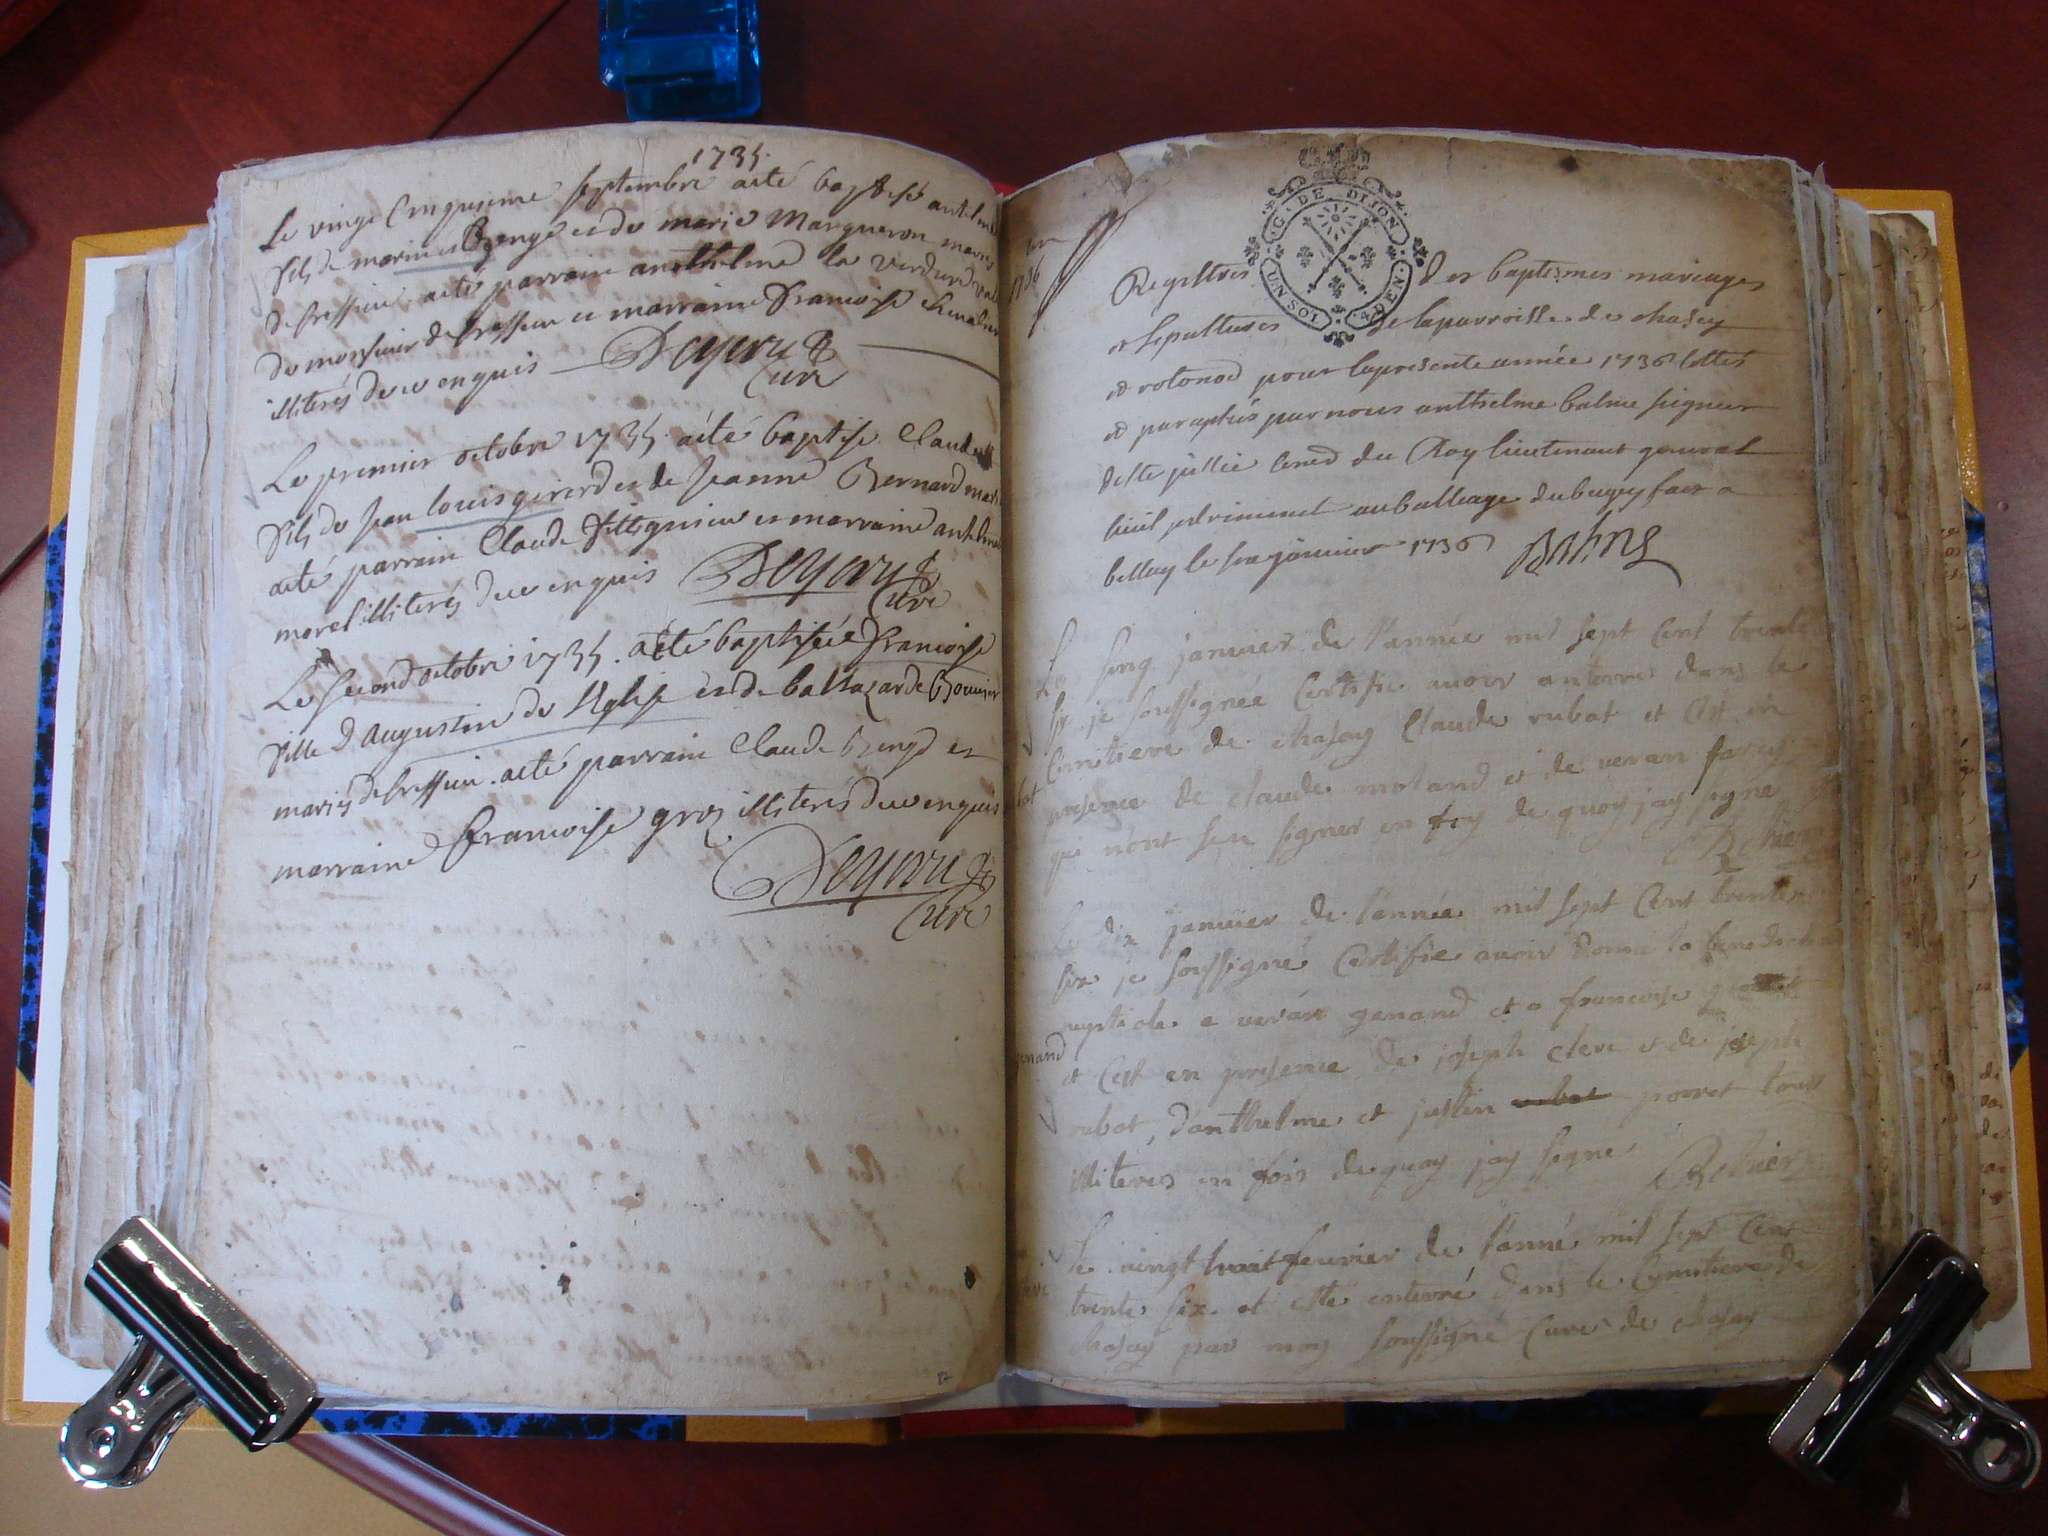 1735.
Le vingt Cinquieme septembre a eté baptisé antelme
fils de marin et de marie Margueron mariés
de Pressieu a eté parrain anthelme la verdure
de monsieur de Pressieu et marraine francoise
illiterés de ce enquis
Curé
Le premier octobre 1735. a eté baptisé Claude
fils de Jean louis girerd et de Jeanne Bernard mariés
a eté parrain Claude et marraine antelme
morel illiterés de ce enquis
Curé
Le second octobre 1735. a eté baptiseé francoise
fille d'augustin de l'Eglise et de baltazarde Bouvier
mariés de Pressieu. a eté parrain Claude et
marraine francoise groz illiterés de ce enquis
Curé
G. DE DIJON
UN SOL 4 DEN.
1736
Registres des baptesmes mariages
et sepultures de la parroisse de chasey
et rotonod pour la presente année 1736 cottés
et paraphés par nous anthelme balme seigneur
de ste jullie Cons.r du Roy lieutenant general
civil et criminel au balliage du bugey fait a
belley le six janvier 1736 Balme
Le sinq janvier de l'année mil sept Cent trente
six je soussignée Certifie avoir anterré dans le
Cimitiere de chasay Claude rubat et C'est en
presence de claude morand et de veran
qui n'ont seu signer en foy de quoy jay signe
Le dix janvier de l'année mil sept Cent trente
six je soussigné Certifie avoir donné la benediction
nuptiale a verán genand et a francoise
genand
et C'est en presence de joseph clerc et de joseph
rubat, d'anthelme et justin povret tous
illiteres en fois de quoy jay signe
Le vingt huit fevrier de l'anné mil sept Cent
trente six et este enterré dans le Cymitiere de
chasay par moy soussigné Curé de chasay